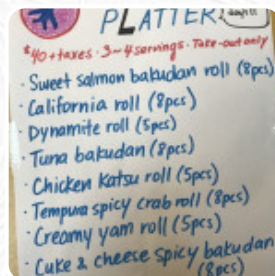 PLATTER
$40 + taxes · 3~4 servings · Take-out only
· Sweet salmon bakudan roll (8pcs)
· California roll (8pcs)
· Dynamite roll (5pcs)
· Tuna bakudan (8pcs)
· Chicken Katsu roll (5pcs)
· Tempura spicy crab roll (8pcs)
· Creamy yam roll (5pcs)
· Cuke & cheese spicy bakudan
(8pcs)